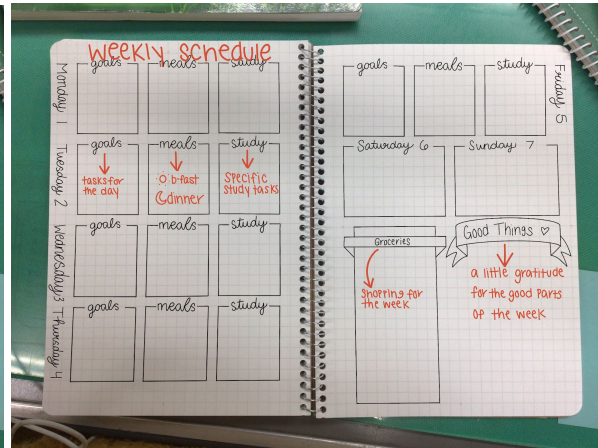 weekly schedule
Monday 1
goals meals study
Tuesday 2
goals meals study
tasks for
the day
b-fast
dinner
specific
study tasks
Wednesday 3
goals meals study
Thursday 4
goals meals study
goals meals study
Friday 5
Saturday 6 Sunday 7
Groceries
shopping for
the week
Good Things ♡
a little gratitude
for the good parts
of the week